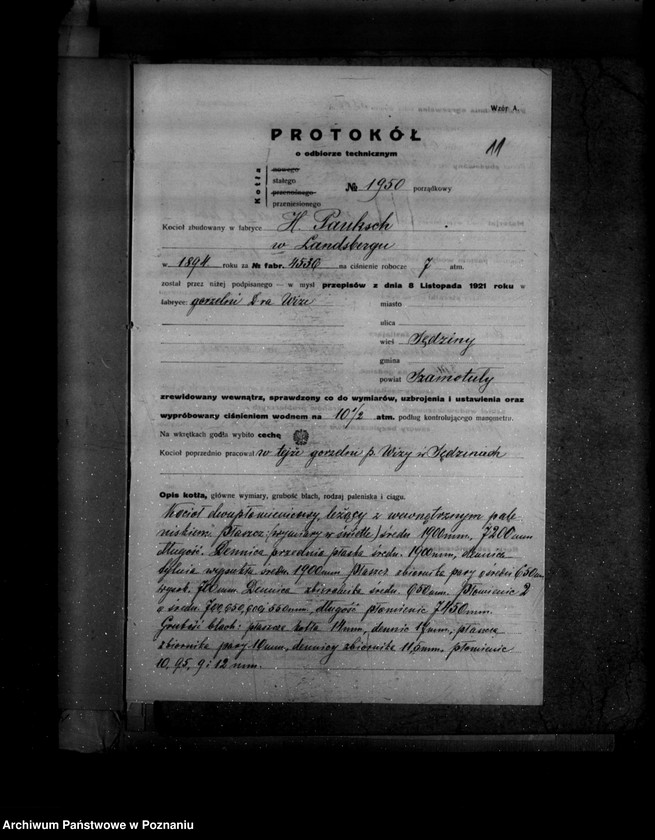 Wzór A.
PROTOKÓŁ
11
o odbiorze technicznym
Kotła
nowego
stałego
przenośnego
przeniesionego
№ 1950 porządkowy
Kocioł zbudowany w fabryce H. Pauksch
w Landsbergu
w 1894 roku za № fabr. 4530 na ciśnienie robocze 7 atm.
został przez niżej podpisanego – w myśl przepisów z dnia 8 Listopada 1921 roku w
fabryce: gorzelni Dra Wize
miasto
ulica
wieś Jędziny
gmina
powiat Szamotuły
zrewidowany wewnątrz, sprawdzony co do wymiarów, uzbrojenia i ustawienia oraz
wypróbowany ciśnieniem wodnem na 10 1/2 atm. podług kontrolującego manometru.
Na wkrętkach godła wybito cechę
Kocioł poprzednio pracował w tejże gorzelni p. Wizy w Jędzinach
Opis kotła, główne wymiary, grubość blach, rodzaj paleniska i ciągu.
Kocioł dwupłomienicowy, leżący z wewnętrznym pale-
niskiem. Płaszcz: (wymiary w świetle) średn 1900 mm, 7200 mm
długość. Dennica przednia płaska średn. 1900 mm, dennica
tylna wygięta średn. 1900 mm Płaszcz zbiornika pary o średn 650 mm
wysok. 700 mm. Dennica zbiornika średn. 650 mm. Płomienic 2
o średn. długość płomienic 7450 mm.
Grubość blach: płaszcz kotła 14 mm, dennic mm, płaszcz
zbiornika pary 10 mm, dennicy zbiornika mm, płomienic
10, 9,5, 9 i 12 mm.
Archiwum Państwowe w Poznaniu